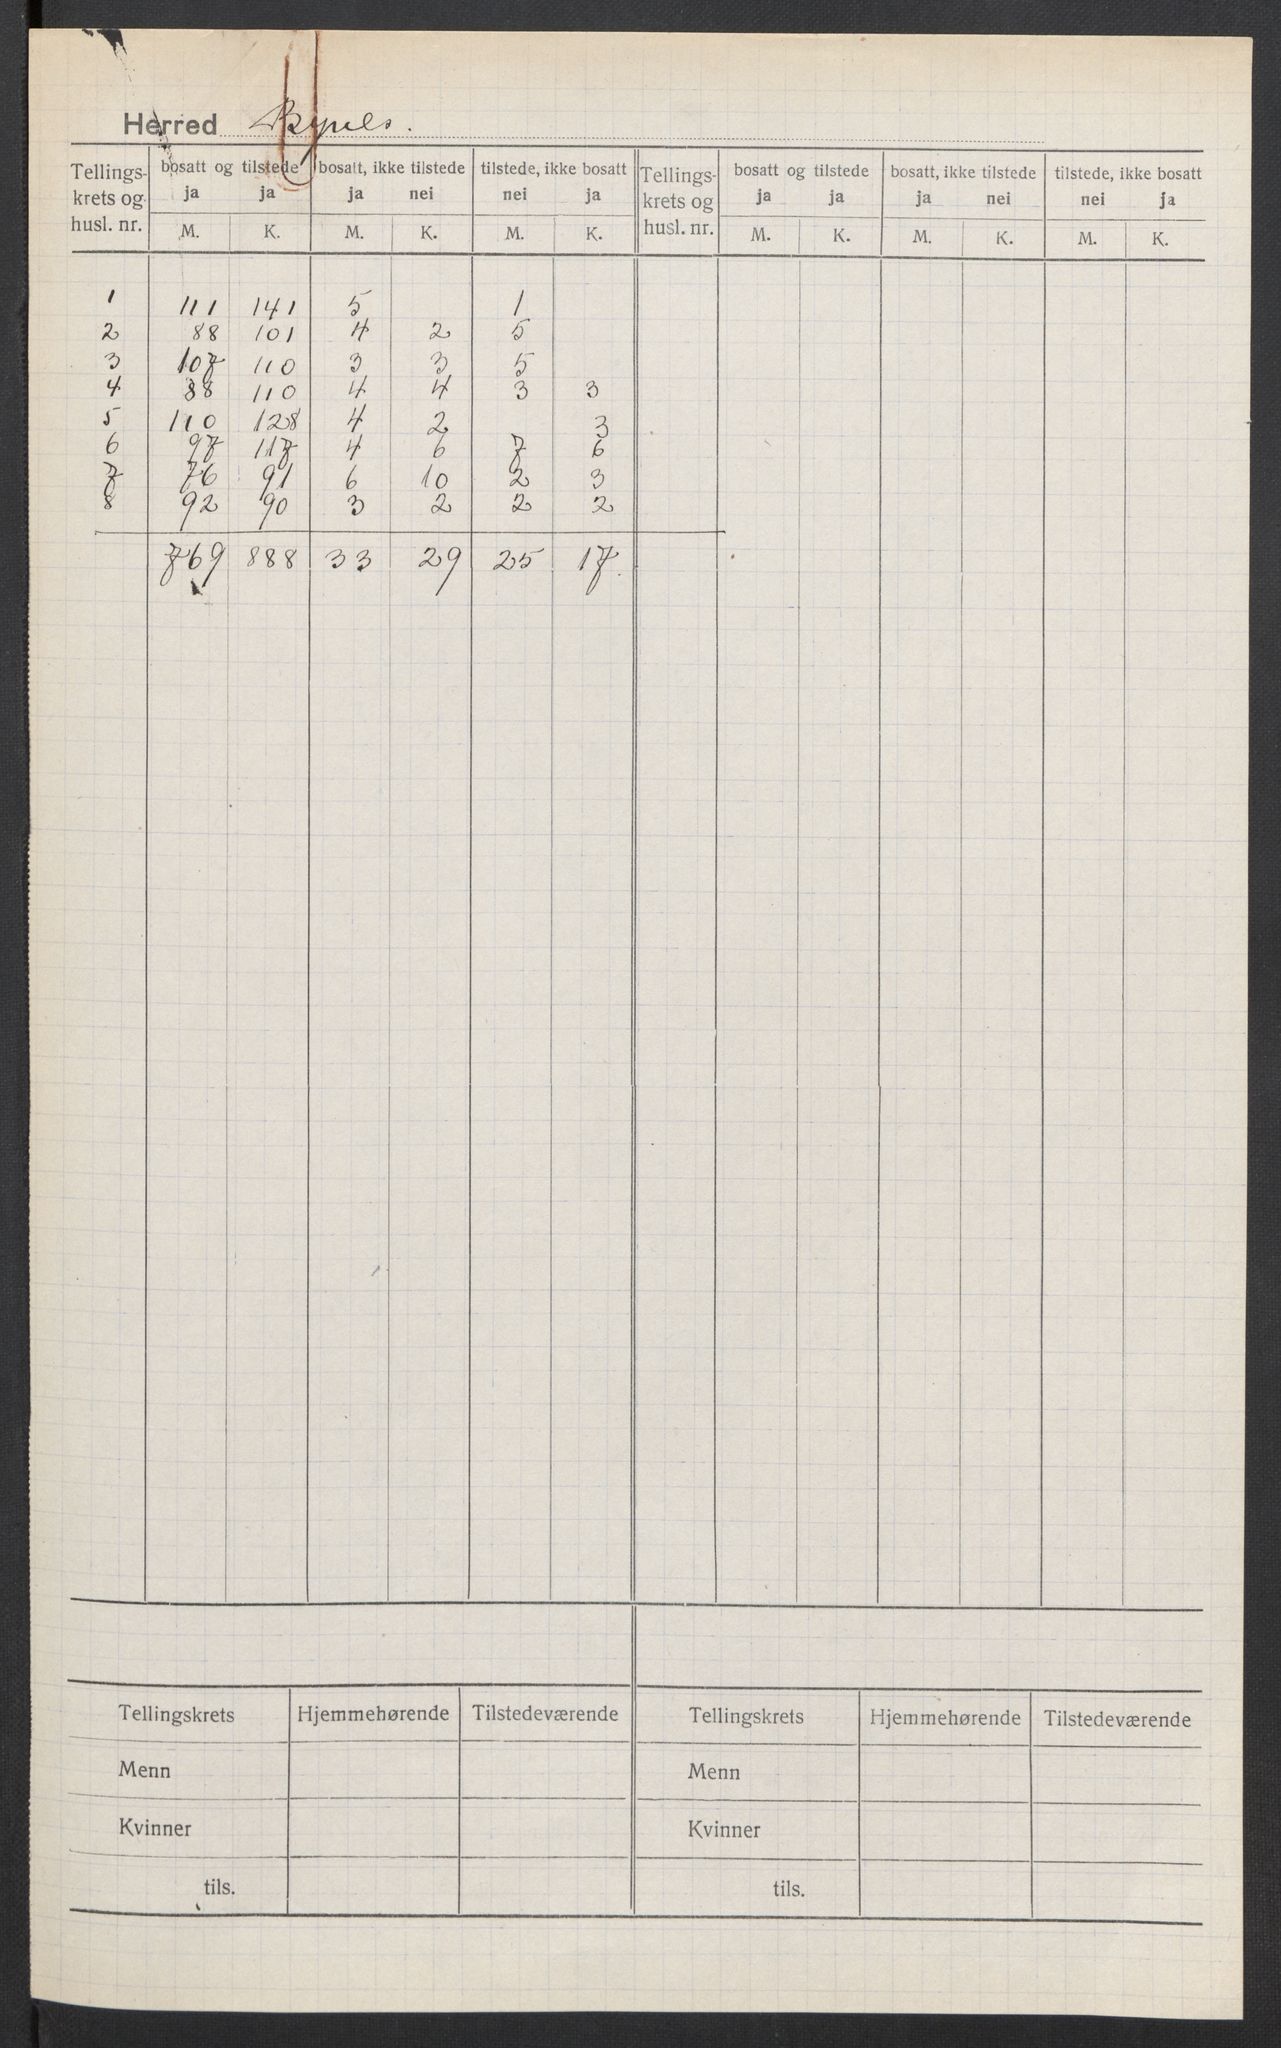 Herred Bynes.
Tellingskrets og husl. nr. bosatt og tilstede bosatt, ikke tilstede tilstede, ikke bosatt Tellingskrets og husl. nr. bosatt og tilstede bosatt, ikke tilstede tilstede, ikke bosatt
ja ja ja nei nei ja ja ja ja nei nei ja
M. K. M. K. M. K. M. K. M. K. M. K.
1 111 141 5 1
2 88 101 4 2 5
3 107 110 3 3 5
4 88 110 4 4 3 3
5 110 128 4 2 3
6 97 117 4 6 7 6
7 76 91 6 10 2 3
8 92 90 3 2 2 2
769 888 33 29 25 17.
Tellingskrets Hjemmehørende Tilstedeværende Tellingskrets Hjemmehørende Tilstedeværende
Menn Menn
Kvinner Kvinner
tils. tils.